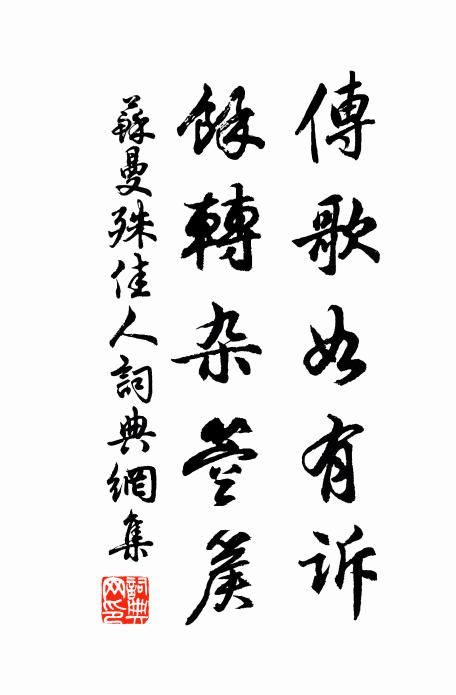 傳歌如有訴
餘轉杂箜篌
蘇曼殊佳人詞典網集
詞典
网印